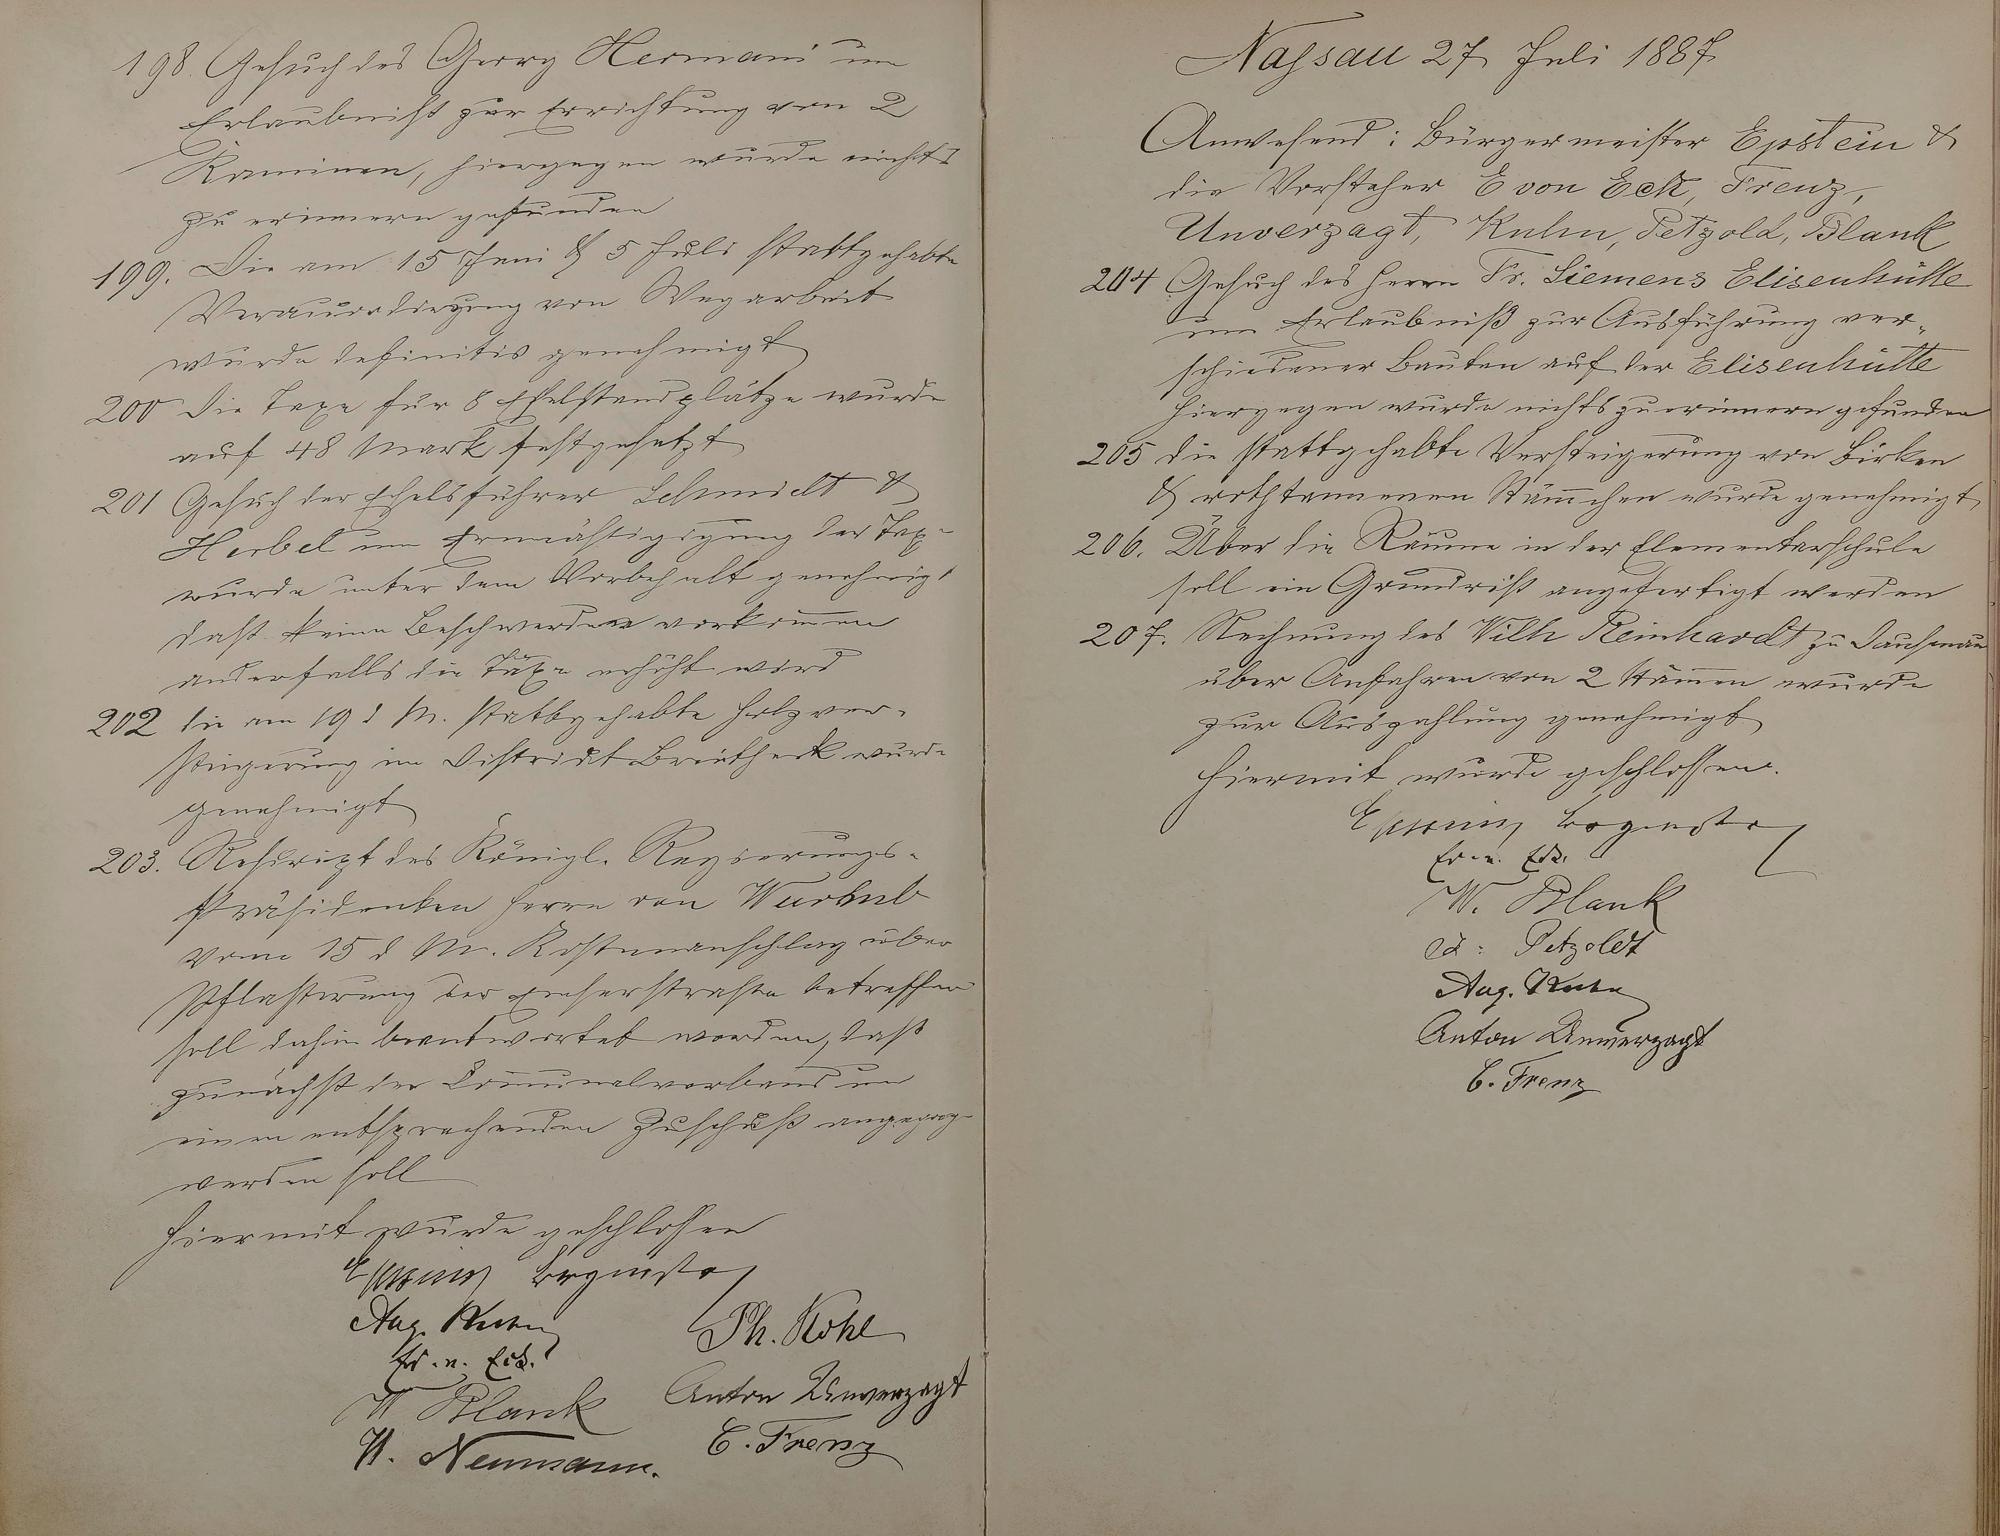 198. Gesuch des Georg Hermani um
Erlaubnißt zur Errichtung von 2
Kaminen, hiergegen wurde nichts
zu erinnern gefunden
199. Die am 15 Juni & 5 Juli stattgehabte
von Wegarbeit
wurde definitiv genehmigt
200 Die Taxe für 8 Eselstandplätze wurde
auf 48 Mark festgesetzt
201 Gesuch der Eselsführer Schmidt &
Herbel um der Tax-
wurde unter dem Vorbehalt genehmigt
daß keine Beschwerden vorkom̄en
anderfalls die Taxe erhöht wird
202 die am 19 d M. stattgehabte Holzver-
steigerung im District wurde
genehmigt
203. Rescript des Königl. Regierungs-
Präsidenten Herrn von Wurmb
vom 15 d M. Kostenanschlag über
Pflasterung der betreffen
soll dahin beantwortet werden, daß
zunächst der Com̄unalverband um
einen entsprechenden Zuschuß
werden soll
Hiermit wurde geschlossen
Epstein Bürgmstr
Aug. Kuhn
Ph. Kohl
Ed. v. Eck.
W Blank
Anton Unverzagt
H. Neumann.
C. Frenz
Nassau 27 Juli 1887
Anwesend: Bürgermeister Epstein &
die Vorsteher E von Eck, Frenz,
Unverzagt, Kuhn, Petzold, Blank
204 Gesuch des Herrn Fr. Siemens Elisenhütte
um Erlaubniß zur Ausführung ver-
schiedener Bauten auf der Elisenhütte
hiergegen wurde nichts zu erinnern gefunden
205 die stattgehabte Versteigerung von Birken
& rothtannenen Stäm̄chen wurde genehmigt
206. Über die Räume in der Elementarschule
soll ein Grundriß angefertigt werden
207. Rechnung des Wilh Reinhardt zu Dausenau
über Anfahren von 2 Stäm̄en wurde
zur Auszahlung genehmigt
Hiermit wurde geschlossen.
Epstein Bürgmstr
Ed. v. Eck.
W. Blank
Ed: Petzoldt
Aug. Kuhn
Anton Unverzagt
C. Frenz